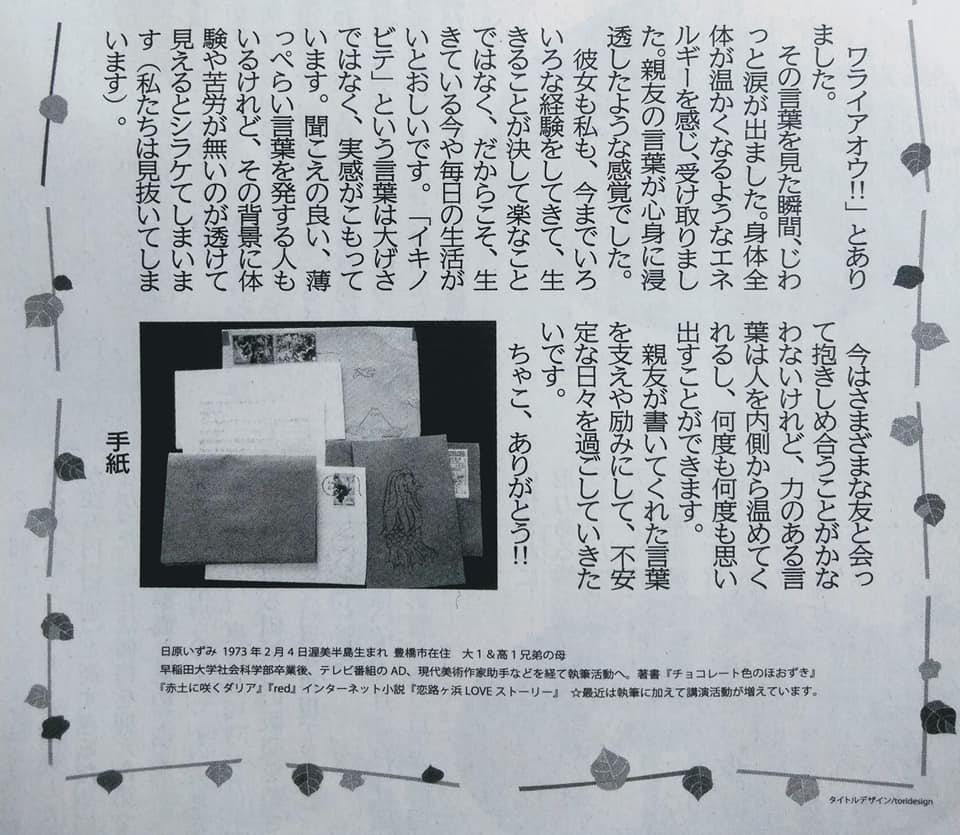 ワライアオウ!!」とあり
ました。
その言葉を見た瞬間、じわ
っと涙が出ました。身体全
体が温かくなるようなエネ
ルギーを感じ、受け取りまし
た。親友の言葉が心身に浸
透したような感覚でした。
彼女も私も、今までいろ
いろな経験をしてきて、生
きることが決して楽なこと
ではなく、だからこそ、生
きている今や毎日の生活が
いとおしいです。「イキノ
ビテ」という言葉は大げさ
ではなく、実感がこもって
います。聞こえの良い、薄
っぺらい言葉を発する人も
いるけれど、その背景に体
験や苦労が無いのが透けて
見えるとシラケてしまいま
す（私たちは見抜いてしま
います）。
今はさまざまな友と会っ
て抱きしめ合うことがかな
わないけれど、力のある言
葉は人を内側から温めてく
れるし、何度も何度も思い
出すことができます。
親友が書いてくれた言葉
を支えや励みにして、不安
定な日々を過ごしていきた
いです。
ちゃこ、ありがとう!!
手紙
日原いずみ 1973年2月4日渥美半島生まれ 豊橋市在住 大1＆高1兄弟の母
早稲田大学社会科学部卒業後、テレビ番組のAD、現代美術作家助手などを経て執筆活動へ。著書『チョコレート色のほおずき』
『赤土に咲くダリア』『red』インターネット小説『恋路ヶ浜LOVEストーリー』 ☆最近は執筆に加えて講演活動が増えています。
タイトルデザイン/toridesign